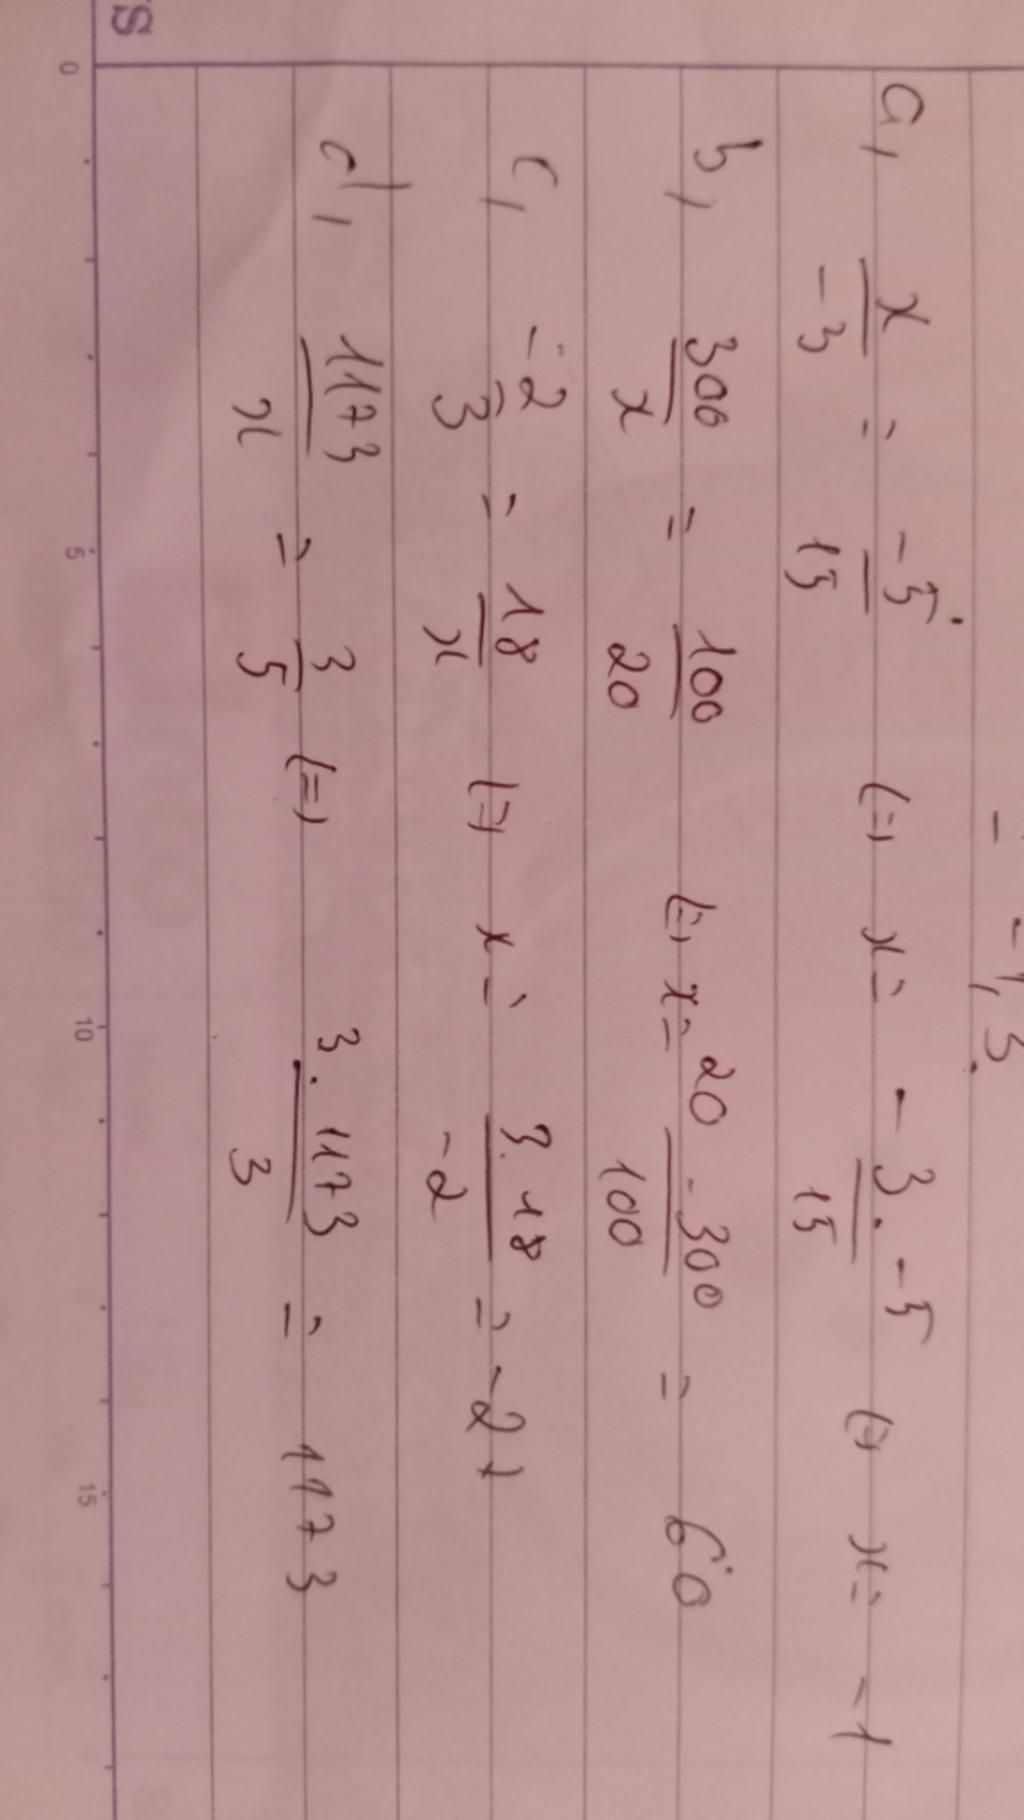 a, x/-3 = -5/15 (=) x = -3.-5/15 (=) x = -1
b, 300/x = 100/20 (=) x = 20-300/100 = 60
c, -2/3 = 18/x (=) x = 3.18/-2 = -27
d, 1173/x = 3/5 (=) 3.1173/3 = 1173
0 5 10 15